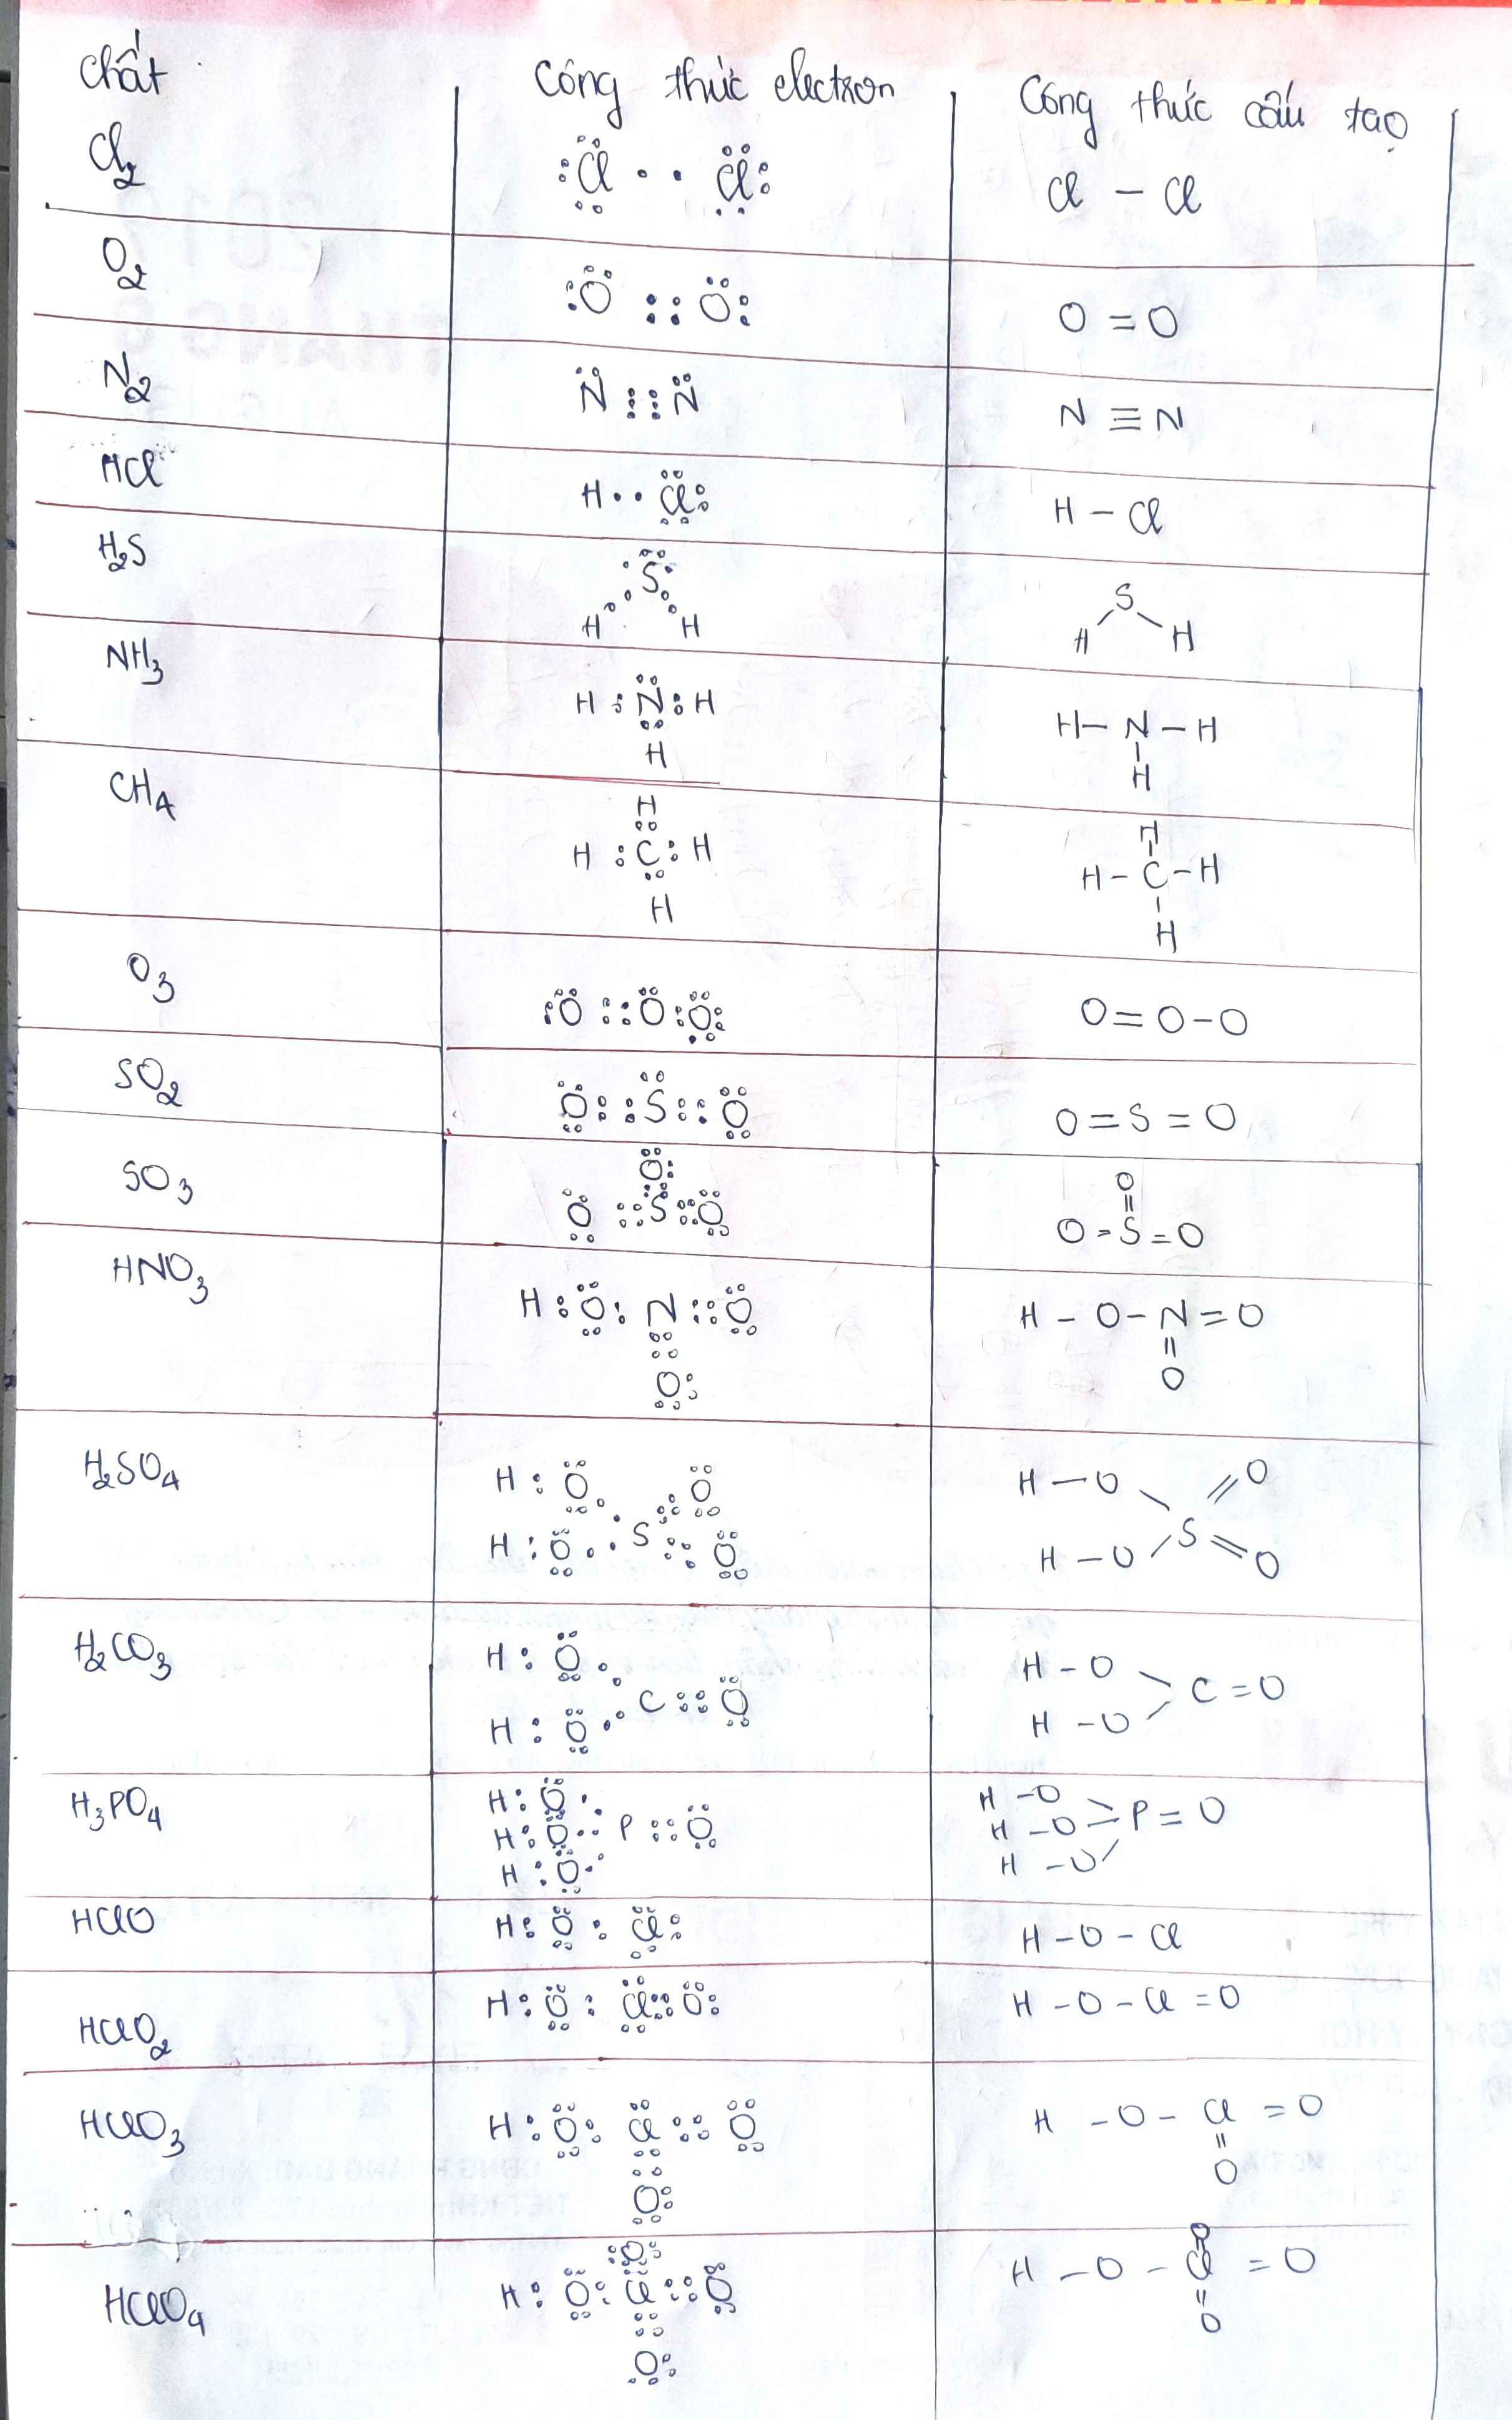 Chất Công thức electron Công thức cấu tạo
Cl2 :Cl · · Cl: Cl – Cl
O2 :O :: O: O = O
N2 N ⋮⋮ N N ≡ N
HCl H·· Cl: H – Cl
H2S S S
H H H H
NH3 H : N : H H – N – H
H H
CH4 H H
H : C : H H – C – H
H H
O3 :O :: O : O: O = O – O
SO2 O :: S :: O O = S = O
SO3 O O
O :: S :: O O = S = O
HNO3 H : O : N :: O H – O – N = O
O: O
H2SO4 H : O O H – O O
S S
H : O O H – O O
H2CO3 H : O H – O
C :: O C = O
H : O H – O
H3PO4 H : O H – O
H : O : P :: O H – O – P = O
H : O H – O
HClO H : O : Cl: H – O – Cl
HClO2 H : O : Cl :: O: H – O – Cl = O
HClO3 H : O : Cl :: O H – O – Cl = O
O: O
HClO4 O O
H : O : Cl :: O H – O – Cl = O
O: O